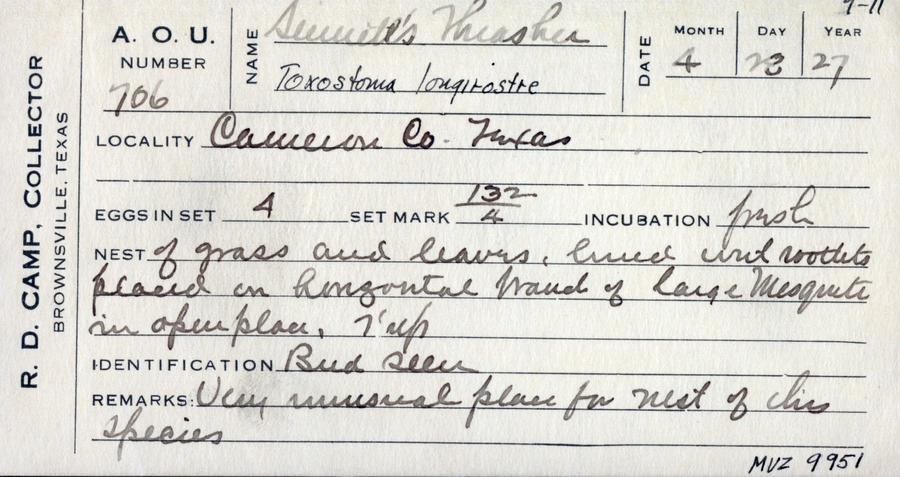 9-11
R. D. CAMP, COLLECTOR
BROWNSVILLE, TEXAS
A. O. U.
NUMBER
706
NAME Sennett's Thrasher
Toxostoma longirostre
DATE
MONTH DAY YEAR
4 23 27
LOCALITY Cameron Co. Texas
EGGS IN SET 4 SET MARK 132/4 INCUBATION fresh
NEST of grass and leaves, lined with rootlets
placed on horizontal branch of large Mesquite
in open place, 7' up
IDENTIFICATION Bird seen
REMARKS: Very unusual place for nest of this
species
MVZ 9951